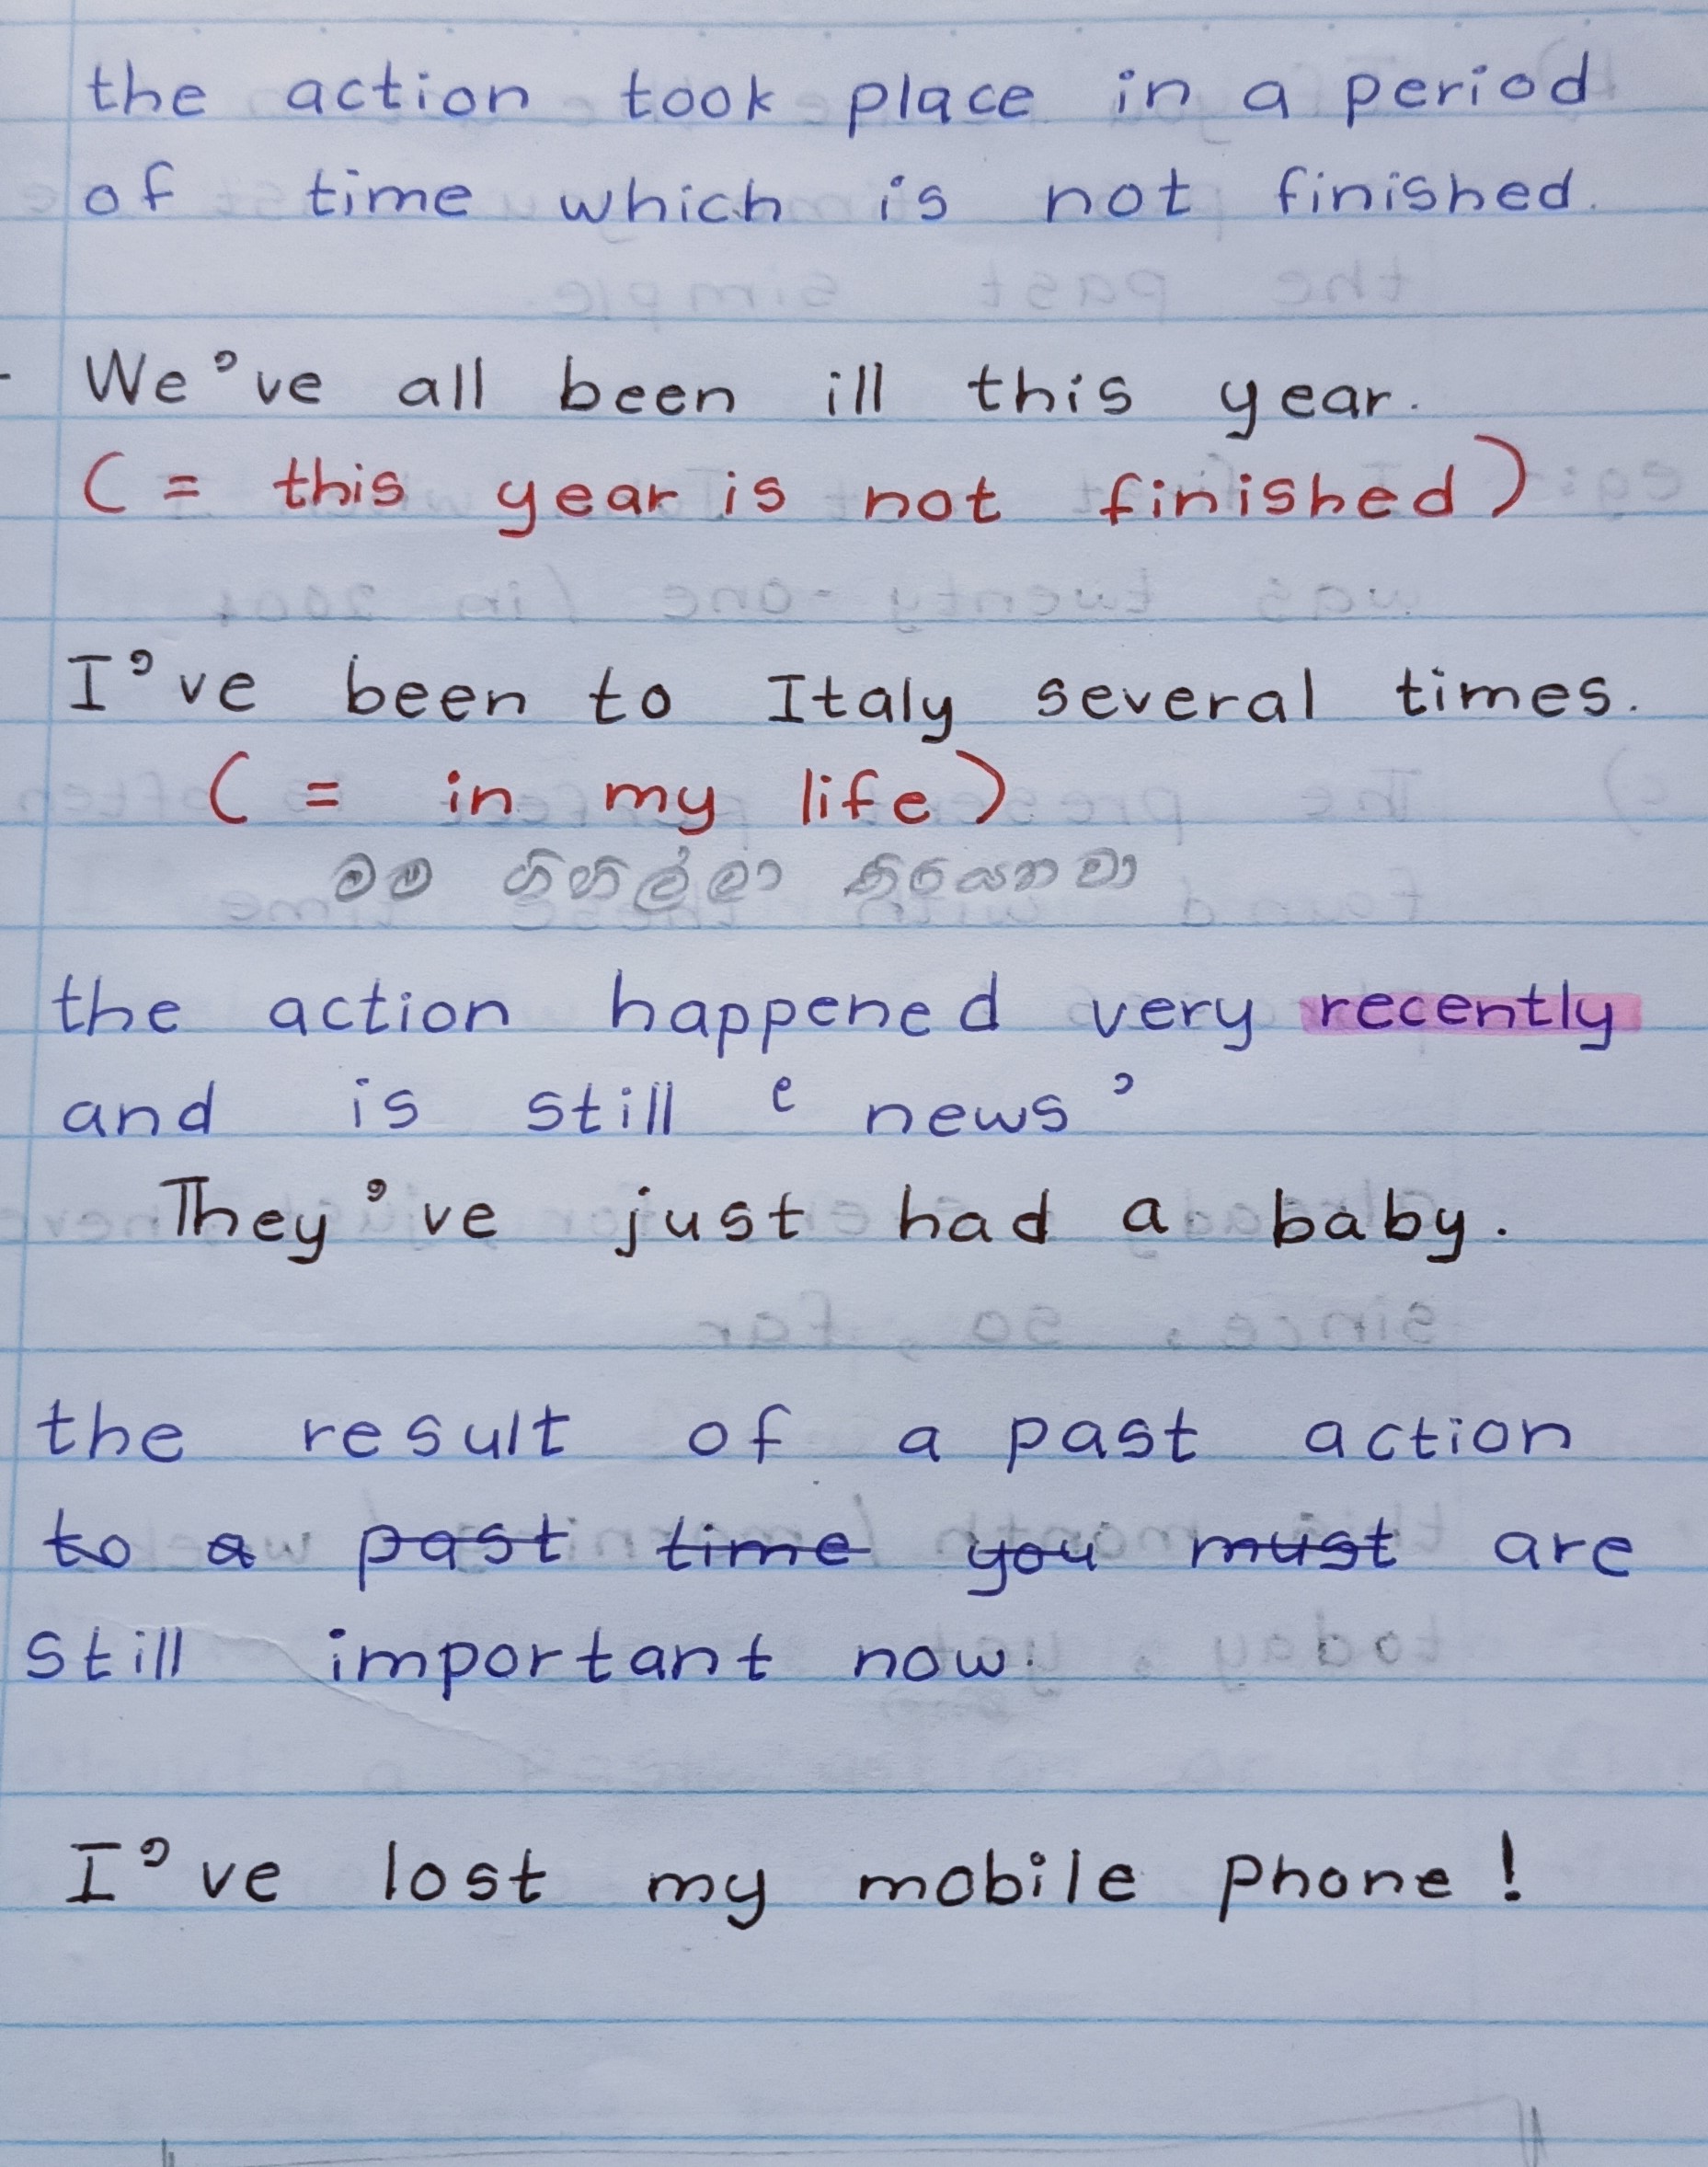 the action took place in a period
of time which is not finished.
- We've all been ill this year.
(= this year is not finished)
I've been to Italy several times.
(= in my life)
මම ගිහිල්ලා තියෙනවා
the action happened very recently
and is still ‘news’
They've just had a baby.
the result of a past action
to a past time you must are
still important now.
I've lost my mobile phone!